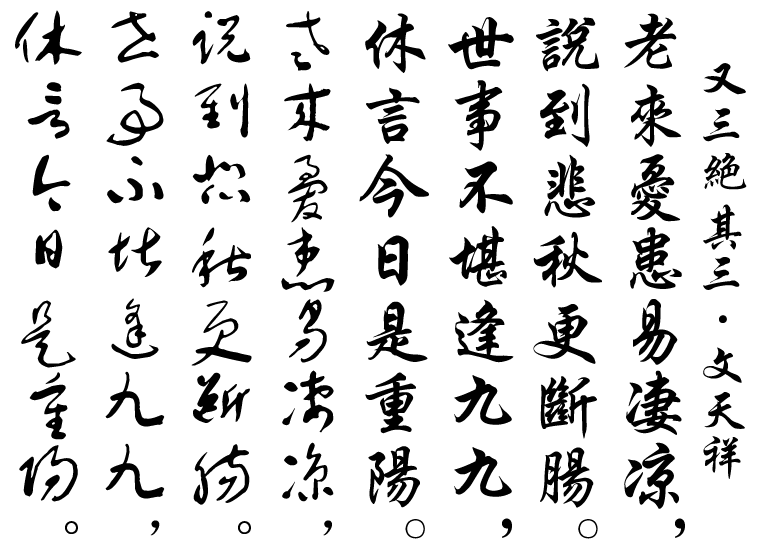 又三絕其三·文天祥
老來憂患易凄涼，
說到悲秋更斷腸。
世事不堪逢九九，
休言今日是重陽。
老來憂患易凄涼，
說到悲秋更斷腸。
世事不堪逢九九，
休言今日是重陽。